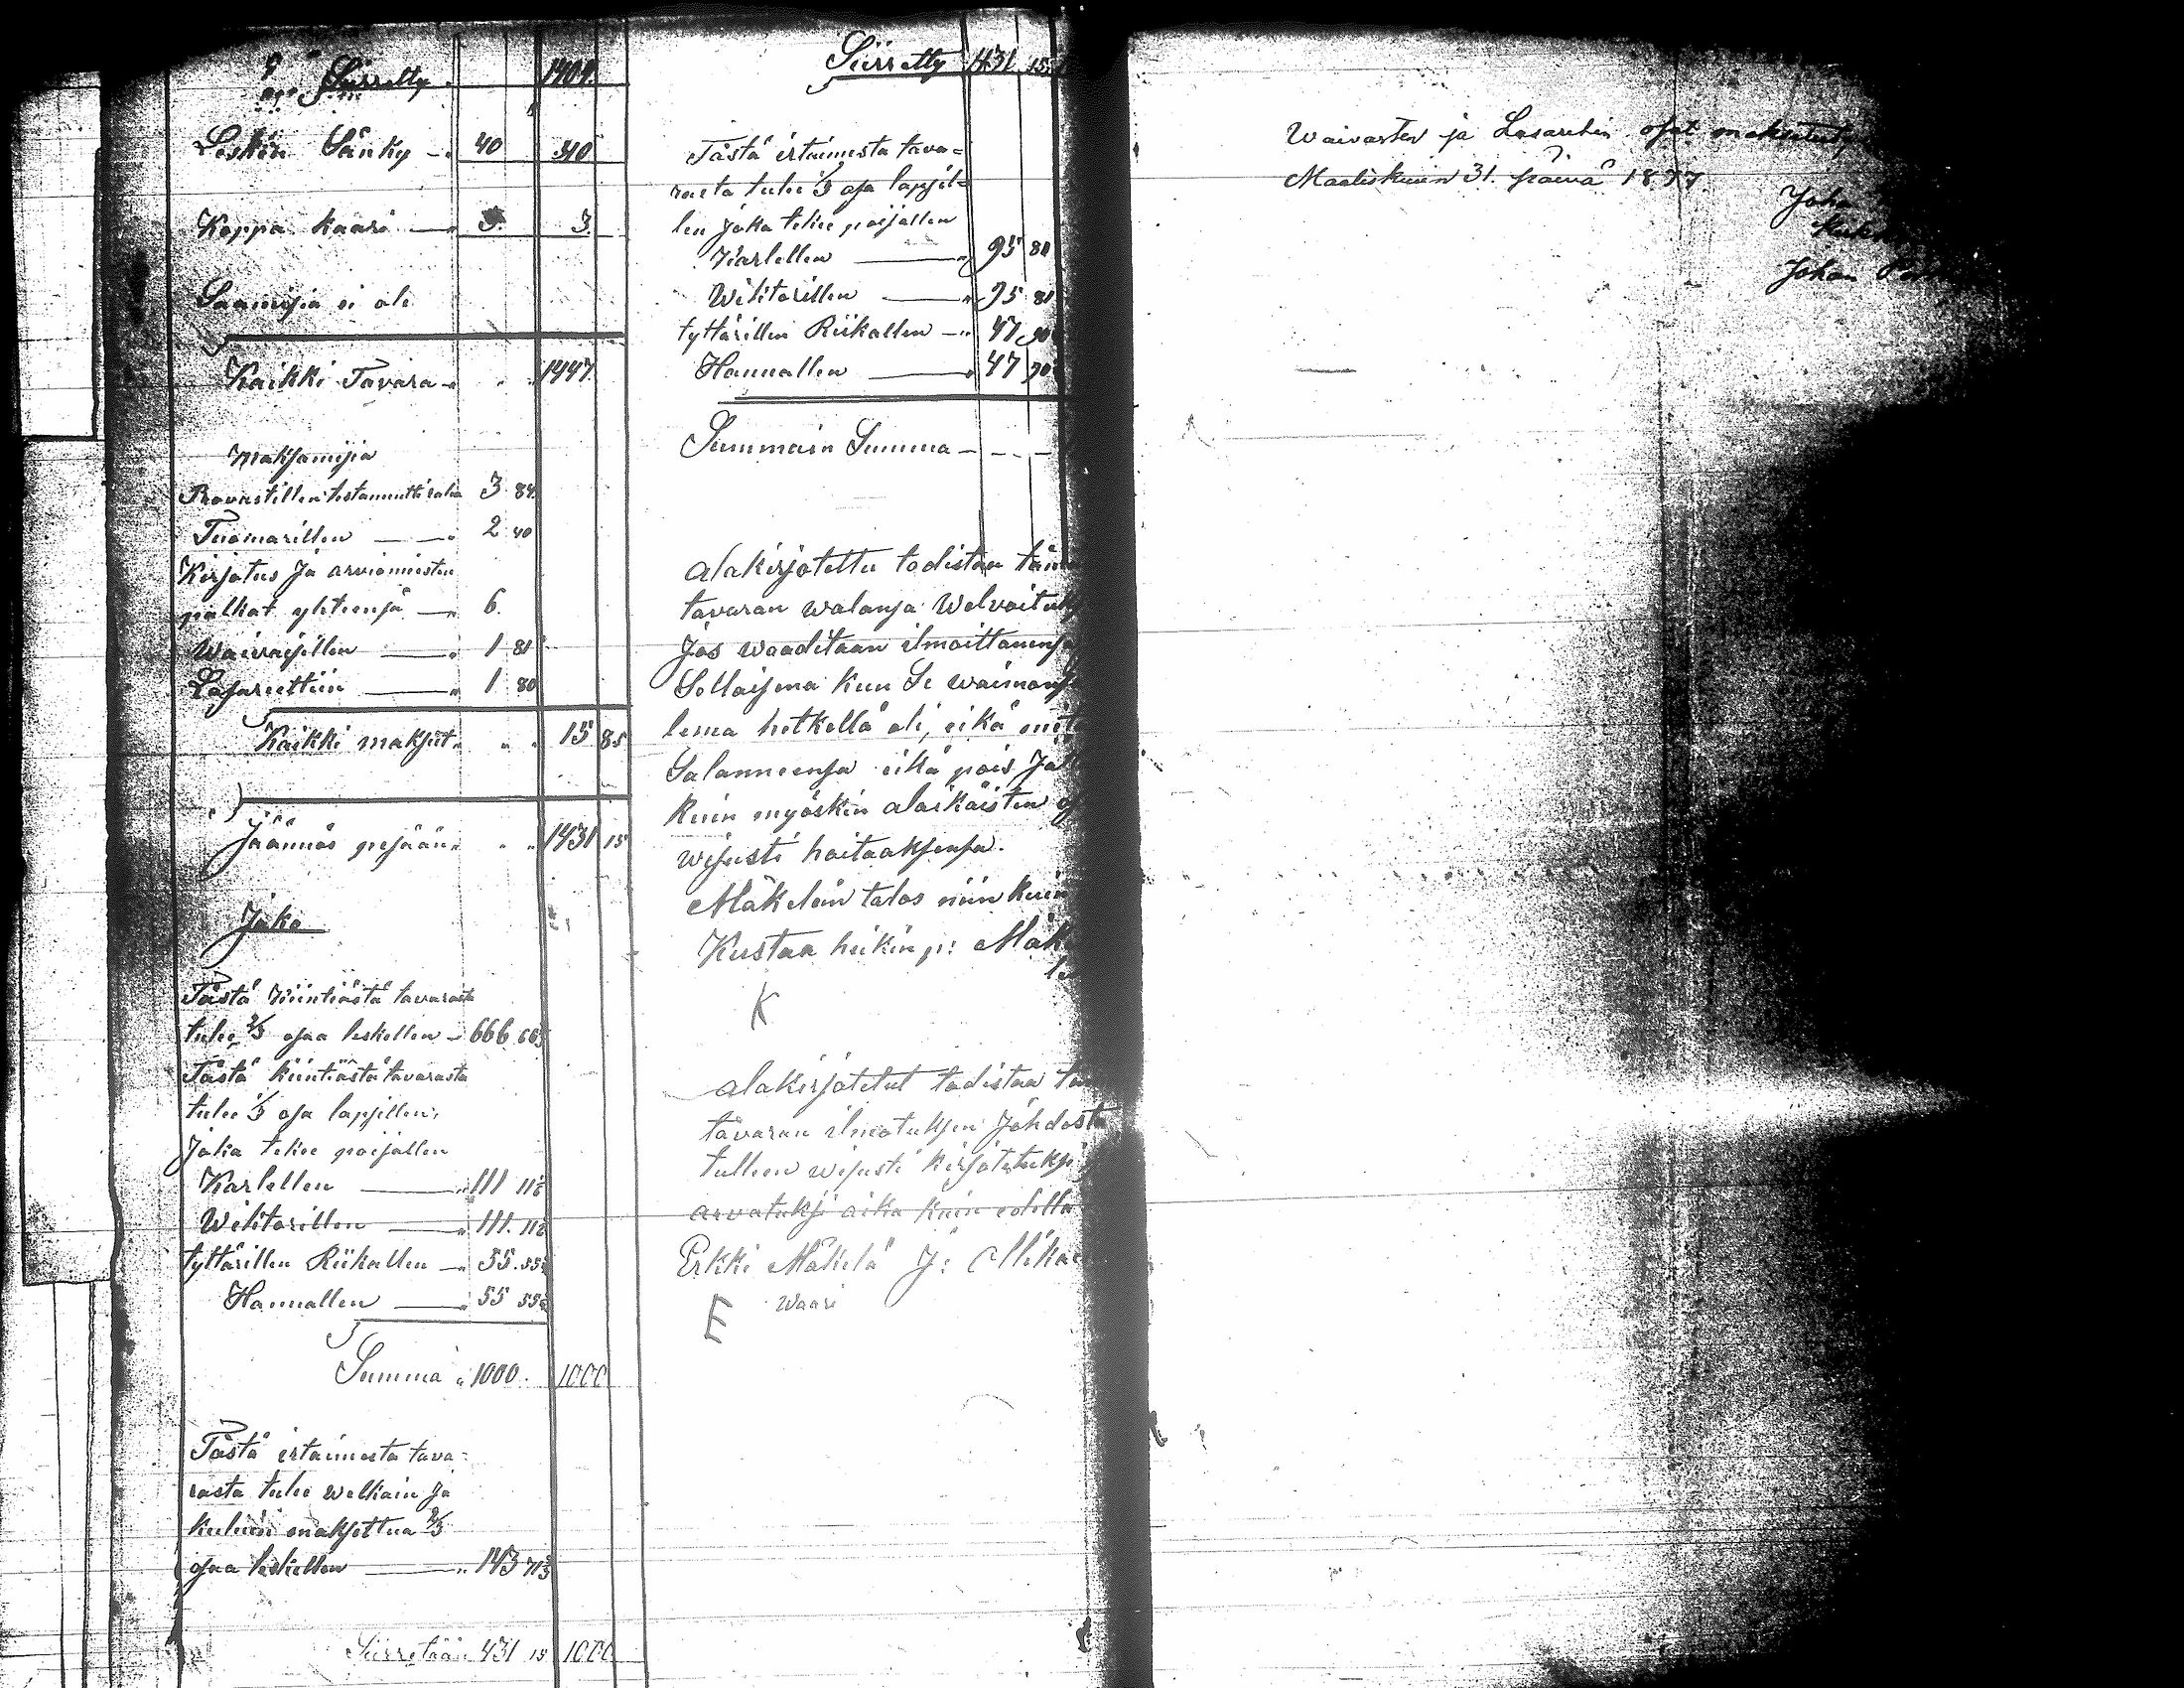 Siirretty " 1404.
Lesken Sänky —" 40 40
Koppa kaari —" 3. 3.
Saamisia ei ole
Kaikki Tavara " " " 1447.
Maksamisia
Provastillen testamentti raha 3 84.
Tuomarillen — —" 2 40
Kirjotus Ja arviomiesten
palkat yhteensä —" 6.
Waivaisillen —" 1 81
Lasarettiin —" 1 80
Kaikki maksut " " " 15 85
Jäännös pesään " " " 1431 15
Jako
Tästä kiintiästä tavarasta
tulee 2/3 osaa leskellen — 666 66⅔
Tästä kiintiästä tavarasta
tulee 1/3 osa lapsillen,
Joka tekee poijallen
Karlellen —" 111 11
Wihtorillen —" 111. 11
tyttärillen Riikallen —" 55. 55
Hannallen —" 55 55
Summa " 1000. 1000
Tästä irtaimesta tava=
rasta tulee welkain Ja
kuluin maksettua 2/3
osaa leskellen —" 143 71⅔
Siirretään 431 15 1000
Siirretty 1431 15
Tästä irtaimesta tava=
rasta tulee 1/3 osa lapsil=
len Joka tekee poijallen
Karlellen —" 95 80
Wihtorillen —" 95 81
tyttärillen Riikallen —" 47 90
Hannallen —" 47 90
Summain Summa — - - -
alakirjotettu todistaa
tavaran walansa
Jos waaditaan ilmoittaneensa
Sellaisena kun Se
lema hetkellä oli, eikä
Salanneensa eikä pois
kuin myöskin alaikäisten
wisusti hoitaaksensa.
Mäkelän talos niin kuin
Kustaa heikin p:
K
alakirjotetut todistaa
tavaran ilmotuksen Johdosta
tulleen wisusti kirjotetuksi
arvatuksi aika kuin edellä
Erkki Mäkelä J:
Waari
E
Waivasten ja Lasaretin osat
Maaliskuun 31. päivä 1877.
Johan